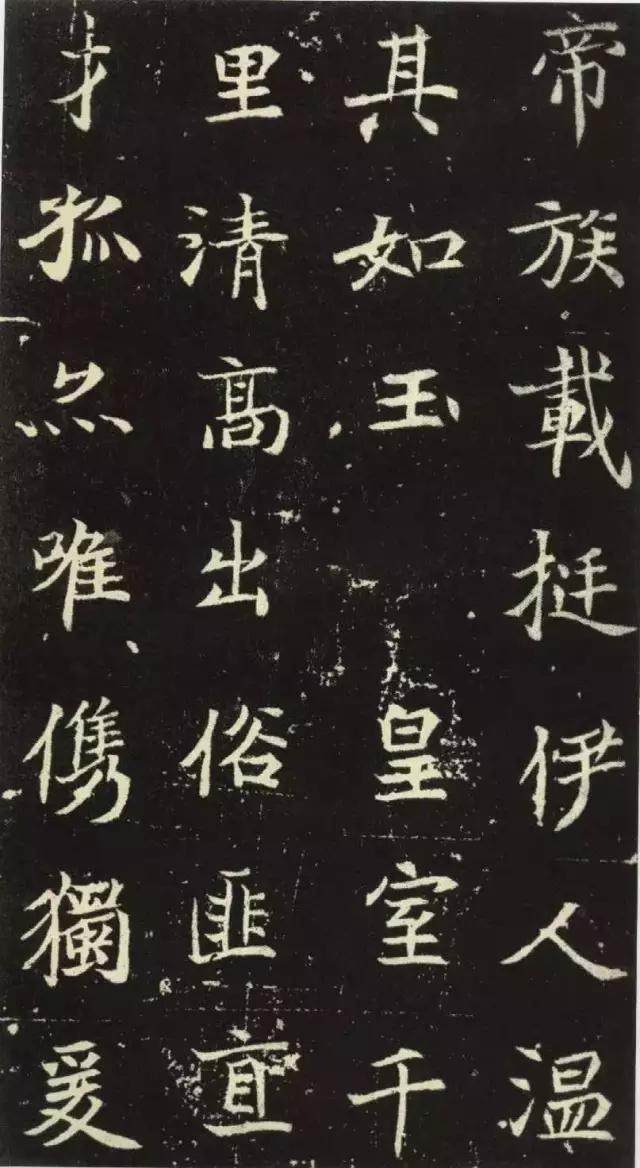 帝族載挺伊人温
其如玉皇室千
里清高出俗匪直
才孤亦唯儁獨爰